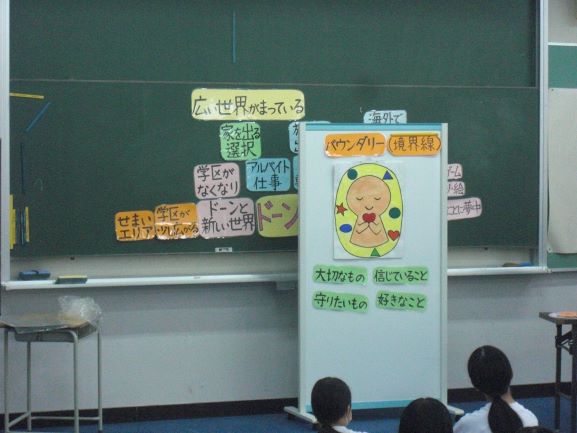 広い世界がまっている
海外で
家を出る
選択
学区が
なくなり
アルバイト
仕事
せまい
エリア
学区が
ドーンと
新しい世界
ドーン
バウンダリー(境界線)
大切なもの 信じていること
守りたいもの 好きなこと
ことに夢中